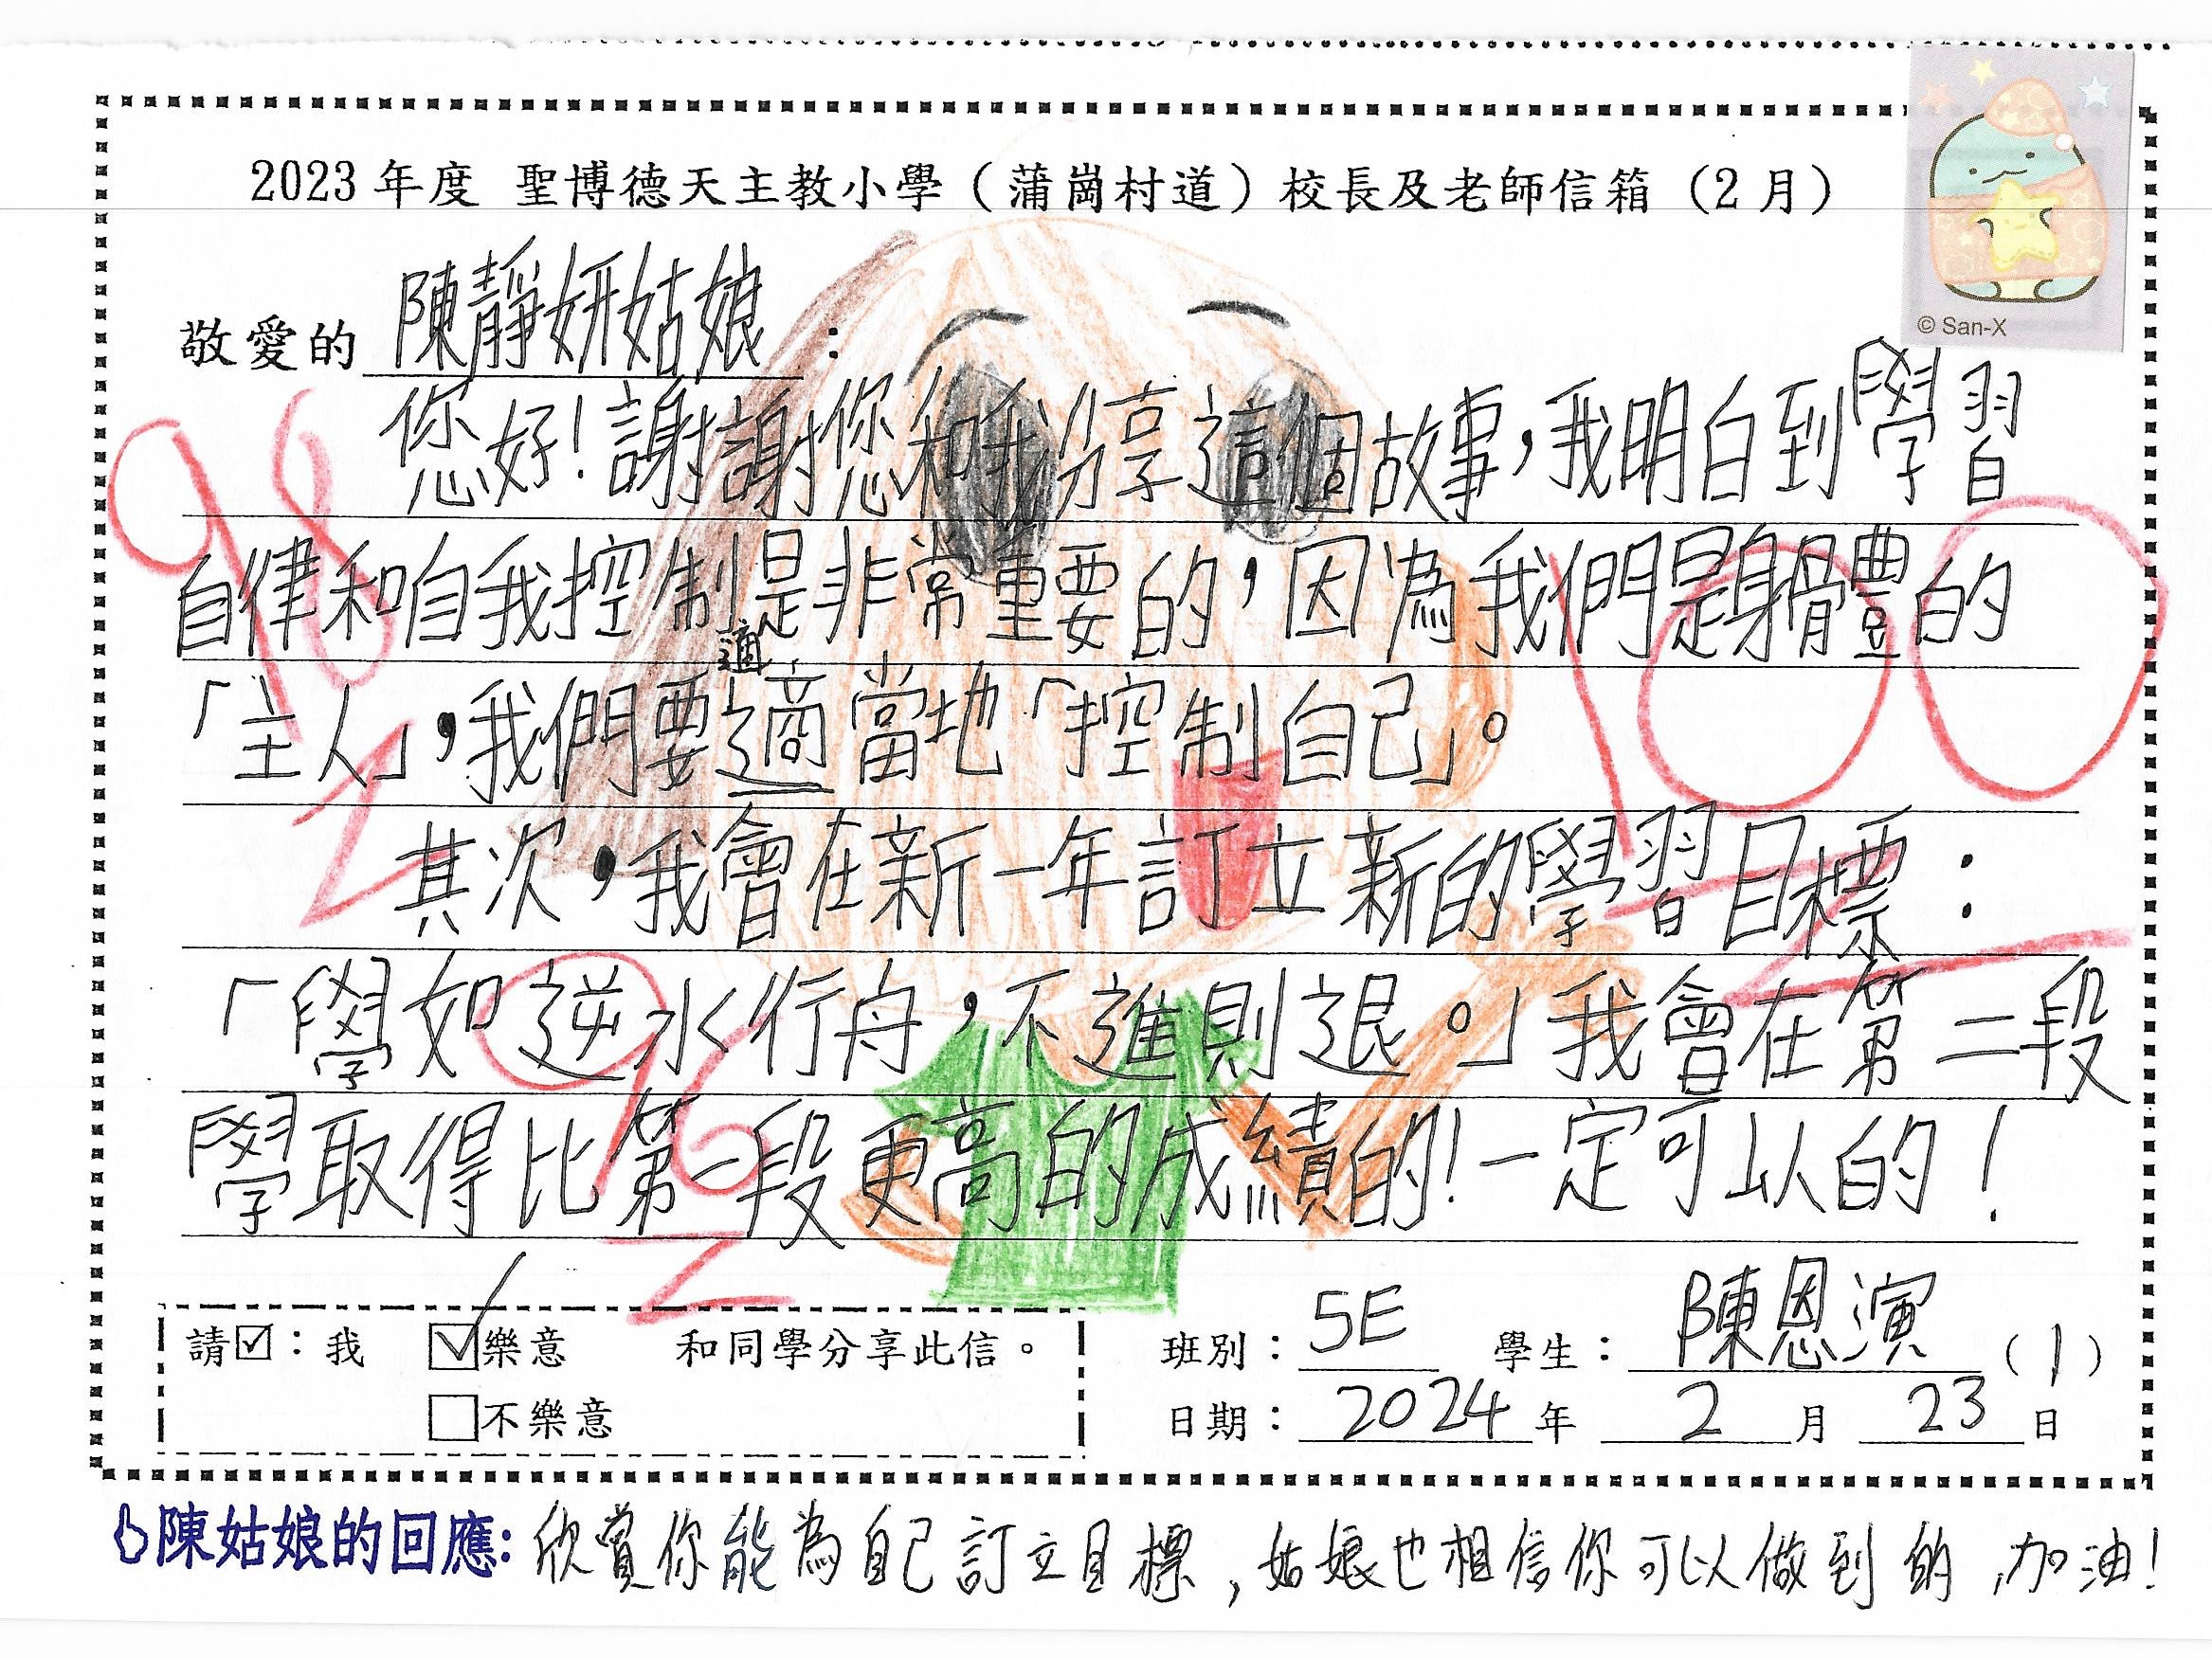 2023 年度 聖博德天主教小學（蒲崗村道）校長及老師信箱（2 月）
© San-X
敬愛的 陳靜妍姑娘：
您好！謝謝您和我分享這個故事，我明白到學習
自律和自我控制是非常重要的，因為我們是身體的
「主人」，我們要適當地「控制自己」。
適
其次，我會在新一年訂立新的學習目標：
「學如逆水行舟，不進則退。」我會在第二段
學取得比第一段更高的成績的！一定可以的！
98
100
96
請☑：我 ☑樂意 和同學分享此信。
□不樂意
班別：5E 學生：陳恩演（1）
日期：2024 年 2 月 23 日
陳姑娘的回應：欣賞你能為自己訂立目標，姑娘也相信你可以做到的，加油！